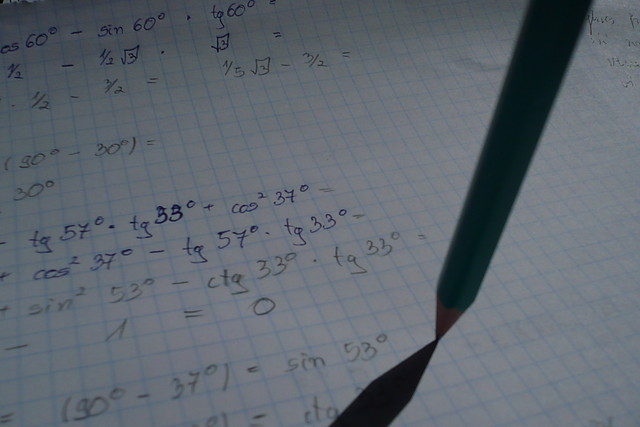 cos 60° - sin 60° · tg 60° =
1/2 - 1/2 √3 · √3 =
· 1/2 - 3/2 = 1/5 √3 - 3/2 =
(90° - 30°) =
30°
- tg 57° · tg 33° + cos² 37° =
+ cos² 37° - tg 57° · tg 33° =
+ sin² 53° - ctg 33° · tg 33° =
- 1 = 0
= (90° - 37°) = sin 53°
°) = ctg